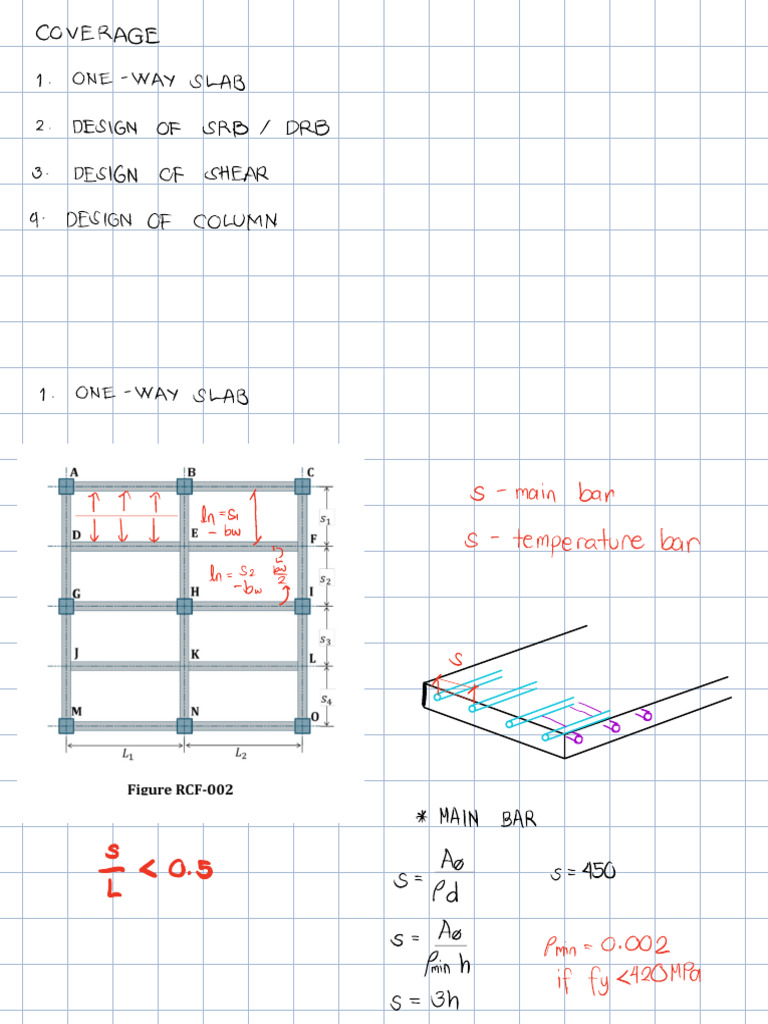 COVERAGE
1. ONE-WAY SLAB
2. DESIGN OF SRB / DRB
3. DESIGN OF SHEAR
4. DESIGN OF COLUMN
1. ONE-WAY SLAB
A B C
ln = s1
- bw
s1
D E F
ln = s2
- bw
bw
2
s2
G H I
s3
J K L
s4
M N O
L1 L2
Figure RCF-002
s/L < 0.5
s - main bar
s - temperature bar
s
* MAIN BAR
s = AØ/ρd
s = 450
s = AØ/ρmin h
ρmin = 0.002
if fy < 420 MPa
s = 3h